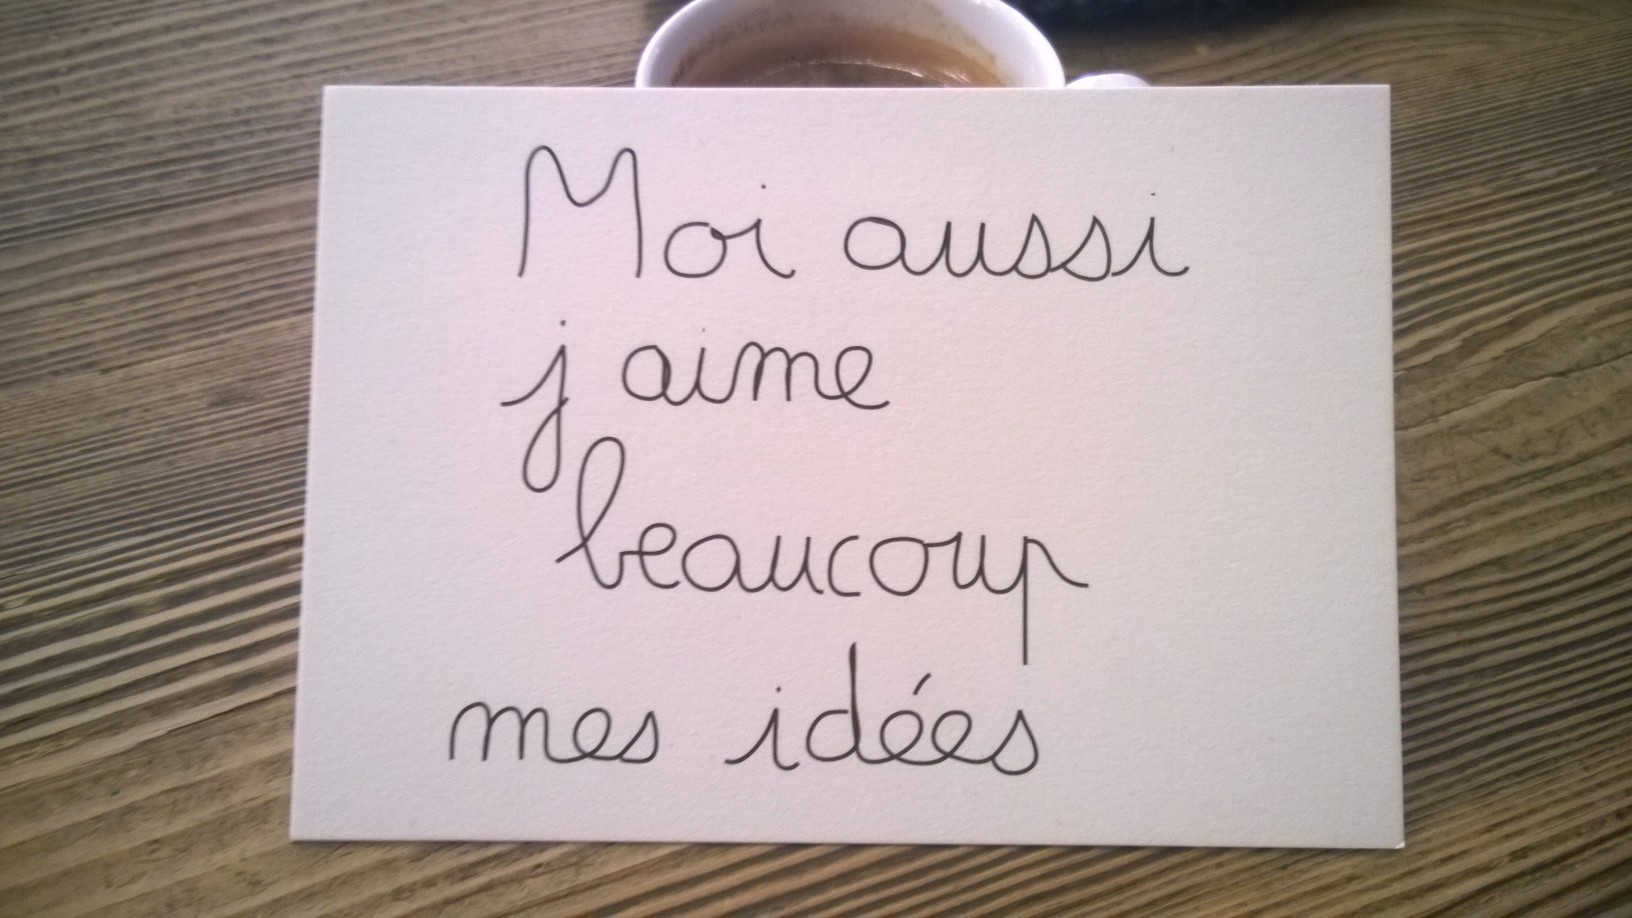 Moi aussi
j aime
beaucoup
mes idées